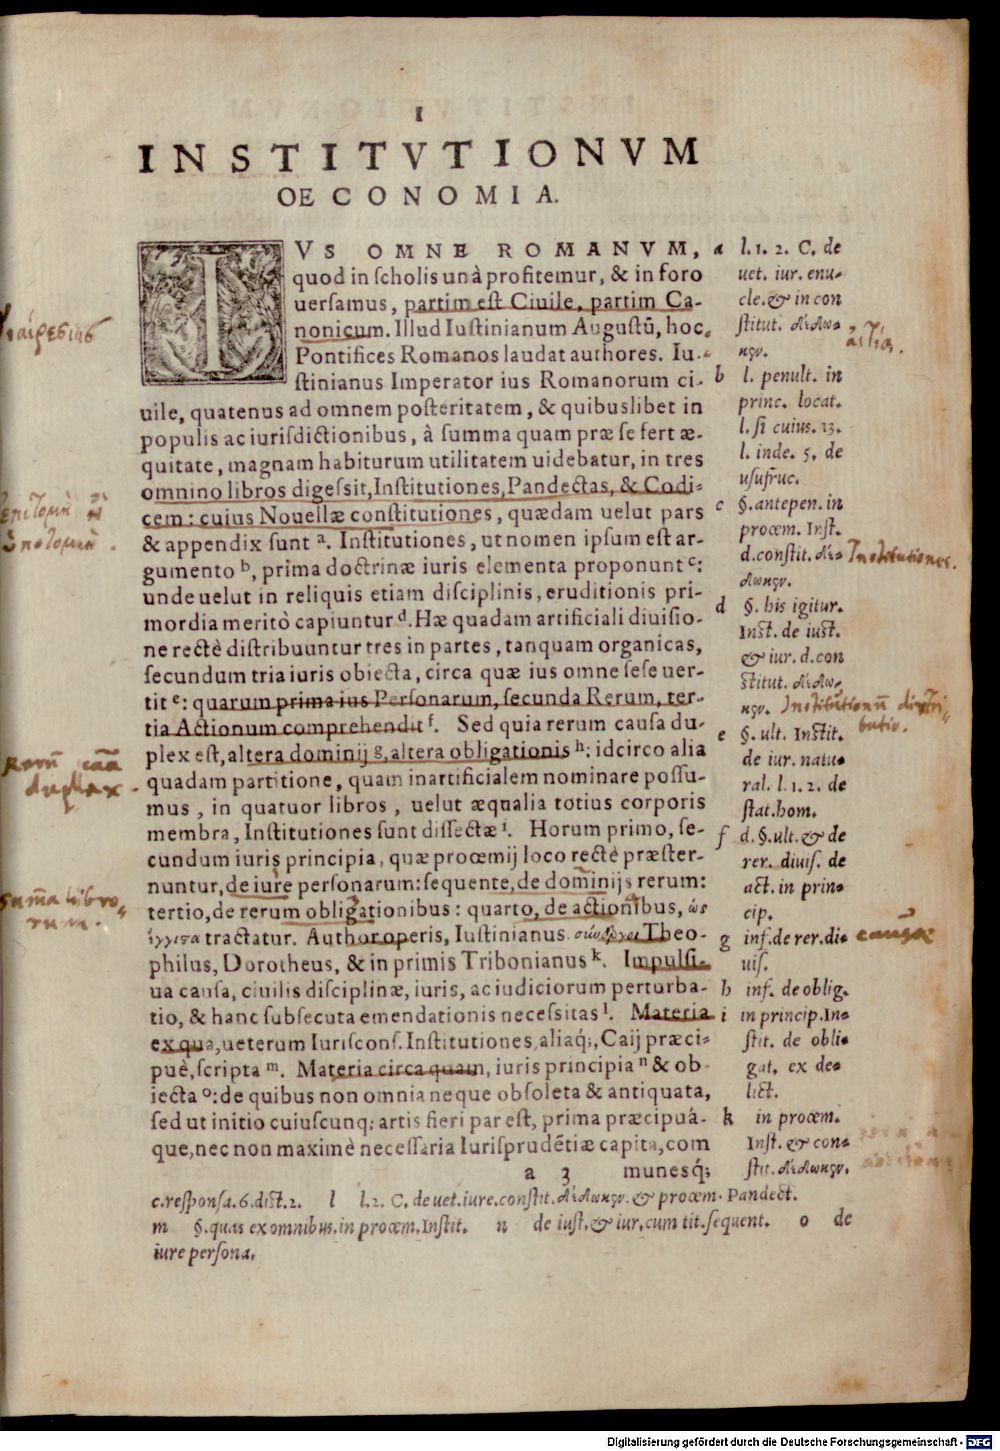 I
INSTITVTIONVM
OECONOMIA.
IVS OMNE ROMANVM,
quod in scholis unà profitemur, & in foro
uersamus, partim est Ciuile, partim Ca-
nonicum. Illud Iustinianum Augustũ, hoc
Pontifices Romanos laudat authores. Iu-
stinianus Imperator ius Romanorum ci-
uile, quatenus ad omnem posteritatem, & quibuslibet in
populis ac iurisdictionibus, à summa quam præ se fert æ-
quitate, magnam habiturum utilitatem uidebatur, in tres
omnino libros digessit, Institutiones, Pandectas, & Codi-
cem: cuius Nouellæ constitutiones, quædam uelut pars
& appendix sunt ᵃ. Institutiones, ut nomen ipsum est ar-
gumento ᵇ, prima doctrinæ iuris elementa proponunt ᶜ:
unde uelut in reliquis etiam disciplinis, eruditionis pri-
mordia meritò capiuntur ᵈ. Hæ quadam artificiali diuisio-
ne rectè distribuuntur tres in partes, tanquam organicas,
secundum tria iuris obiecta, circa quæ ius omne sese uer-
tit ᵉ: quarum prima ius Personarum, secunda Rerum, ter-
tia Actionum comprehendit ᶠ. Sed quia rerum causa du-
plex est, altera dominij ᵍ, altera obligationis ʰ: idcirco alia
quadam partitione, quam inartificialem nominare possu-
mus, in quatuor libros, uelut æqualia totius corporis
membra, Institutiones sunt dissectæ ⁱ. Horum primo, se-
cundum iuris principia, quæ procemij loco rectè præster-
nuntur, de iure personarum: sequente, de dominijs rerum:
tertio, de rerum obligationibus: quarto, de actionibus, ὡς
ἔγγιστα tractatur. Author operis, Iustinianus. σύνεργοι Theo-
philus, Dorotheus, & in primis Tribonianus ᵏ. Impulsi-
ua causa, ciuilis disciplinæ, iuris, ac iudiciorum perturba-
tio, & hanc subsecuta emendationis necessitas ˡ. Materia
ex qua, ueterum Iuriscons. Institutiones, aliaq;, Caij præci-
puè, scripta ᵐ. Materia circa quam, iuris principia ⁿ & ob-
iecta ᵒ: de quibus non omnia neque obsoleta & antiquata,
sed ut initio cuiuscunq; artis fieri par est, prima præcipuá-
que, nec non maximè necessaria Iurisprudẽtiæ capita, com
a 3 munesq́;
a l. 1. 2. C. de
uet. iur. enu-
cle. & in con
stitut. δέδω-
κεν.
b l. penult. in
princ. locat.
l. si cuius. 13.
l. inde. 5. de
usufruc.
c §. antepen. in
procem. Inst.
d. constit. δέ-
δωκεν.
d §. his igitur.
Inst. de iust.
& iur. d. con
stitut. δέδω-
κεν.
e §. ult. Instit.
de iur. natu-
ral. l. 1. 2. de
stat. hom.
f d. §. ult. & de
rer. diuis. de
act. in prin-
cip.
g inf. de rer. di-
uis.
h inf. de oblig.
i in princip. In-
stit. de obli-
gat. ex de-
lict.
k in procem.
Inst. & con-
stit. δέδωκεν.
c. responsa. 6. dict. 2. l l. 2. C. de uet. iure. constit. δέδωκεν. & procem. Pandect.
m §. quas ex omnibus. in procem. Instit. n de iust. & iur. cum tit. sequent. o de
iure persona.
διαίρεσις
αἰτία.
ἐπιτομὴ
Institutiones.
Institutionũ distri-
butio.
Rerũ caũa
duplex.
Sum̃a libro-
rum.
Digitalisierung gefördert durch die Deutsche Forschungsgemeinschaft - DFG